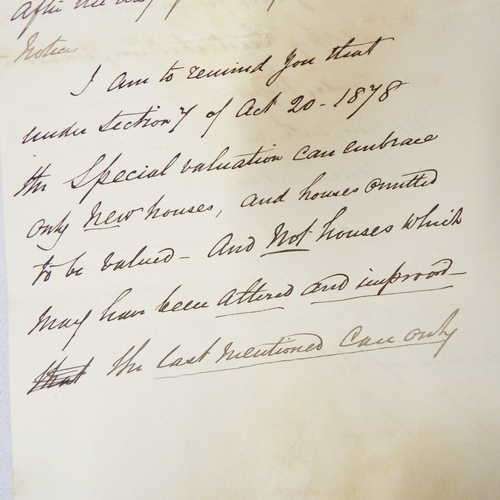 After the
Notices
I am to remind you that
under Section 7 of Act 20-1878
the Special valuation can embrace
only new houses, and houses omitted
to be valued - And Not houses which
may have been altered and improved -
that the last mentioned can only